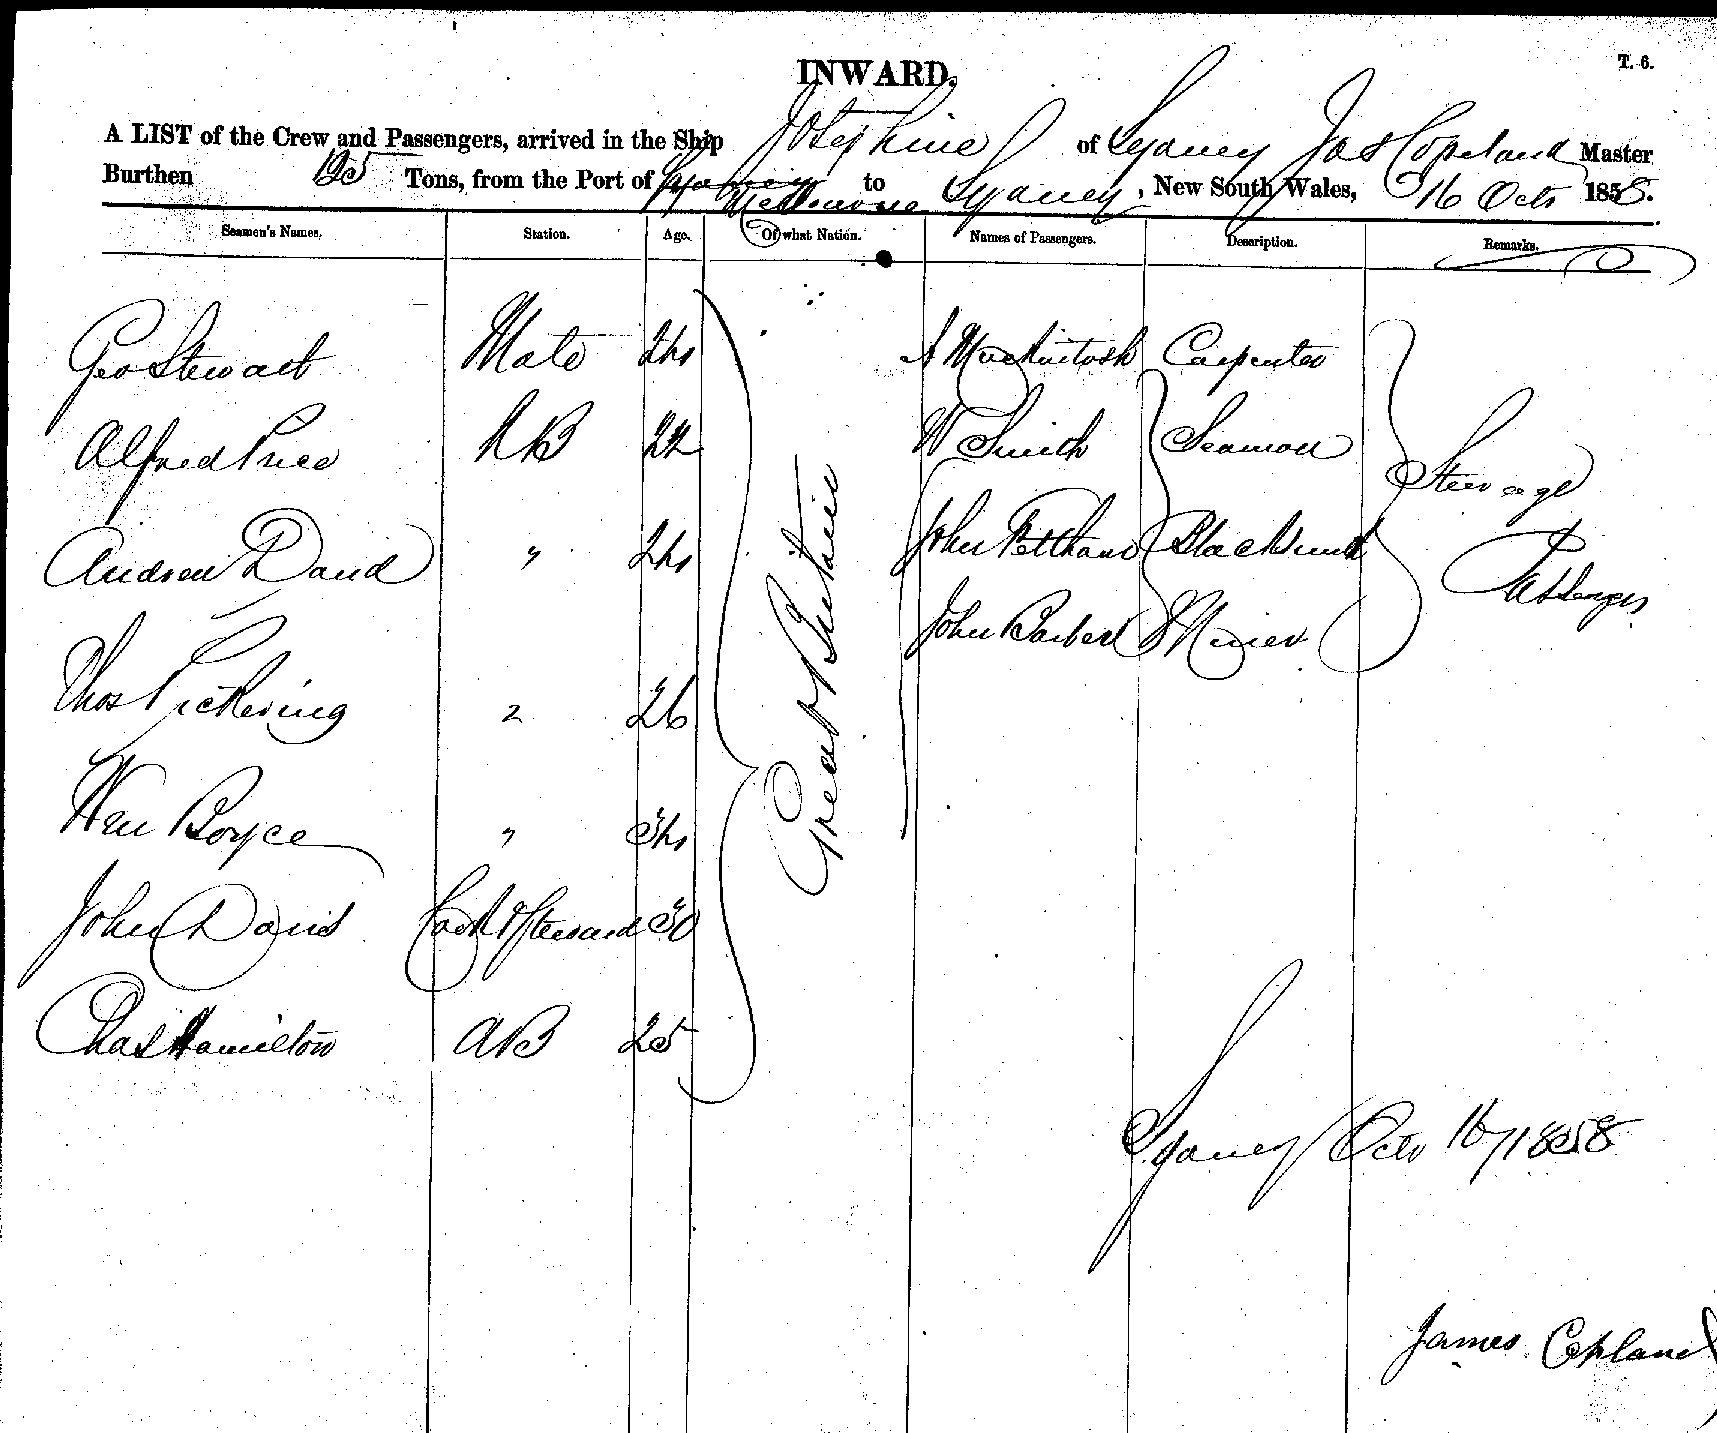 T. 6.
INWARD.
A LIST of the Crew and Passengers, arrived in the Ship Josephine of Sydney Jas Copeland Master
Burthen 125 Tons, from the Port of Sydney Melbourne to Sydney, New South Wales, 16 Octr 1858.
Seamen's Names. Station. Age. Of what Nation. Names of Passengers. Description. Remarks.
Geo Stewart Mate 24 A Mackintosh Carpenter
Alfred Price AB 22 W Smith Seaman
Steerage
Andrew David " 24 John Blacksmith
Passengers
John Barber Miner
Great Britain
Thos Pickering " 26
Wm Boyce " 34
John Davis Cook & Steward 30
Chas Hamilton AB 25
Sydney Octr 16/1858
James Copland